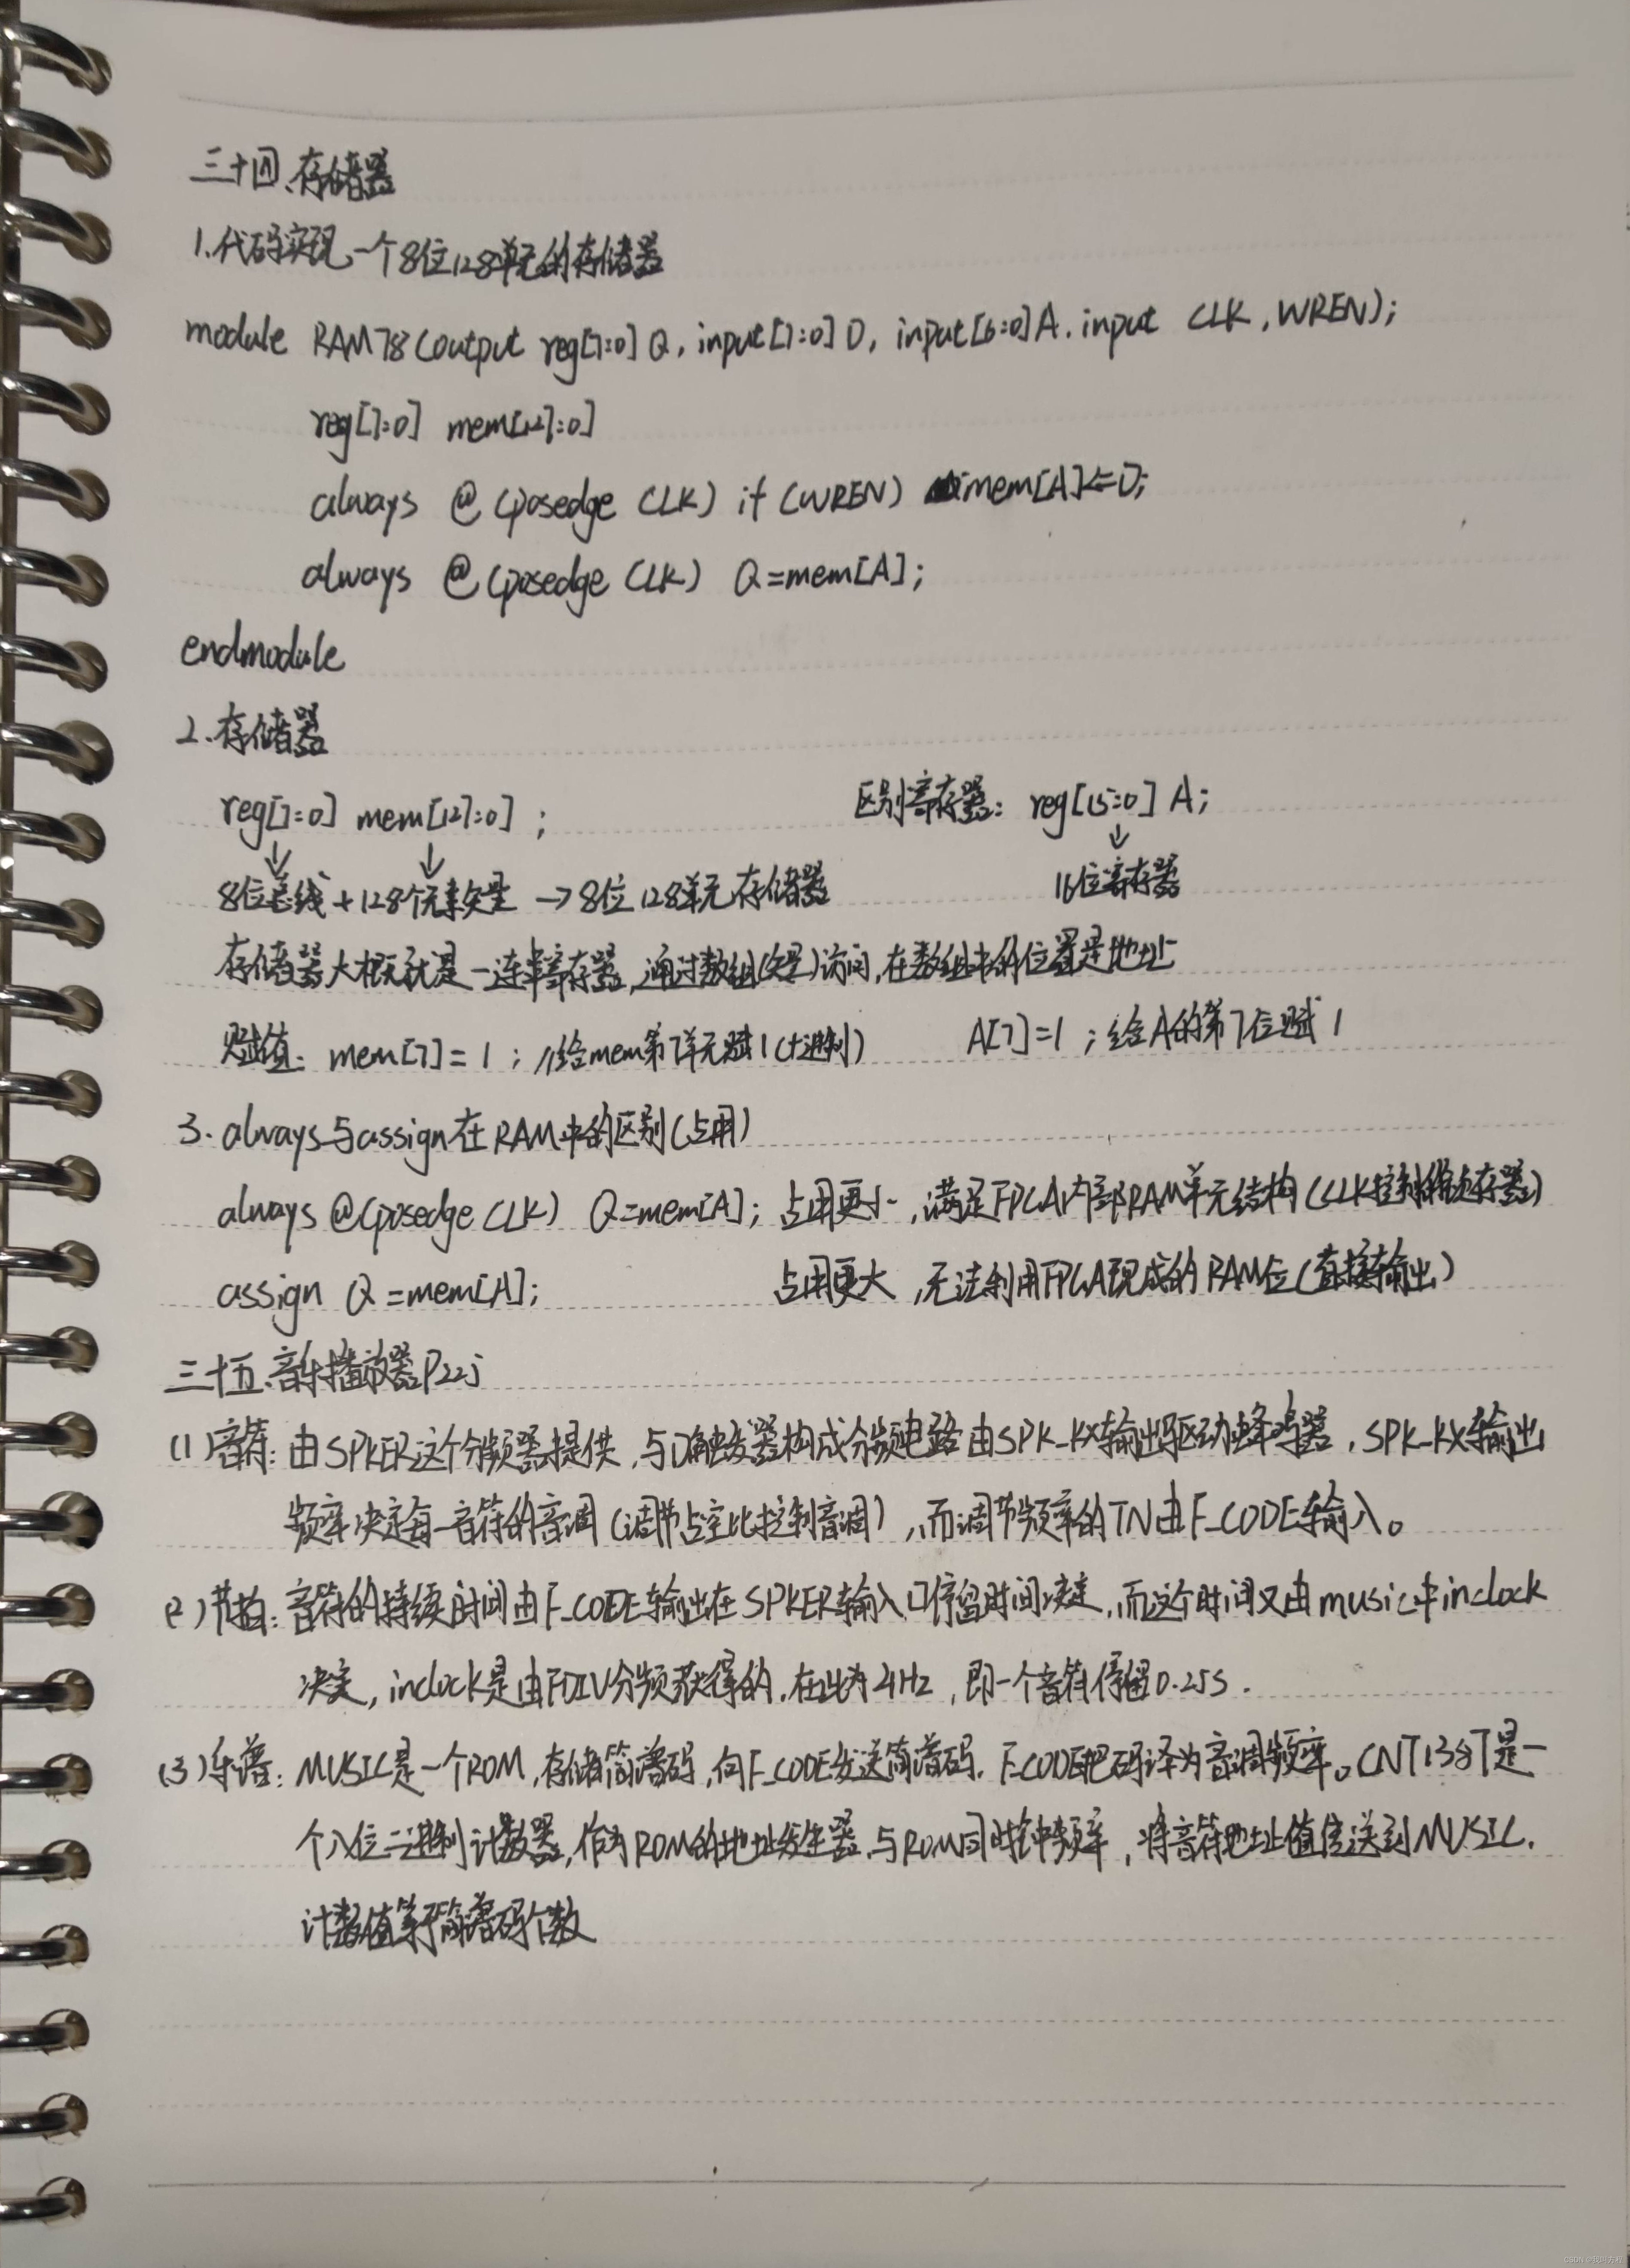 三十四、存储器
1.代码实现一个8位128单元的存储器
module RAM78(output reg[7:0] Q, input[7:0] D, input[6:0] A, input CLK, WREN);
reg[7:0] mem[127:0]
always @(posedge CLK) if (WREN) mem[A]<=D;
always @(posedge CLK) Q=mem[A];
endmodule
2.存储器
reg[7:0] mem[127:0]; 区别寄存器: reg[15:0] A;
8位总线+128个元素矢量→8位128单元存储器 16位寄存器
存储器大概就是一连串寄存器,通过数组(矢量)访问,在数组中的位置是地址
赋值: mem[7]=1; //给mem第7单元赋1(十进制) A[7]=1;给A的第7位赋1
3.always与assign在RAM中的区别(占用)
always @(posedge CLK) Q=mem[A]; 占用更小,满足FPGA内部RAM单元结构(CLK控制锁存器)
assign Q=mem[A]; 占用更大,无法利用FPGA现成的RAM位(直接输出)
三十五、音乐播放器P225
(1)音符:由SPKER这个分频器提供,与D触发器构成分频电路由SPK_KX输出驱动蜂鸣器,SPK_KX输出
频率决定每一音符的音调(调节占空比控制音调),而调节频率的TN由F_CODE输入。
(2)节拍:音符的持续时间由F_CODE输出在SPKER输入口停留时间决定,而这个时间又由music中inclock
决定,inclock是由FDIV分频获得的,在此为4Hz,即一个音符停留0.25s.
(3)乐谱:MUSIC是一个ROM,存储简谱码,向F_CODE发送简谱码,F_CODE把码译为音调频率。CNT138T是一
个八位二进制计数器,作为ROM的地址发生器,与ROM同时钟频率,将音符地址值传送到MUSIC.
计数值等于简谱码个数
CSDN @我叫方程